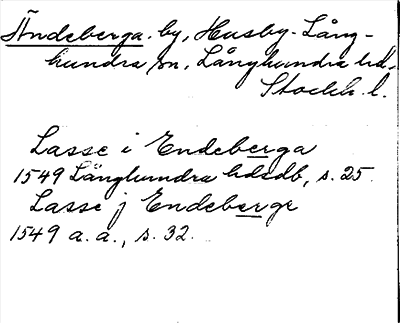 Ändeberga. by, Husby-Lång-
hundra sn, Långhundra hd.,
Stockh. l.
Lasse i Endeberga
1549 Långhundra hdsdb, s. 25.
Lasse j Endeberge
1549 a.a., s. 32.